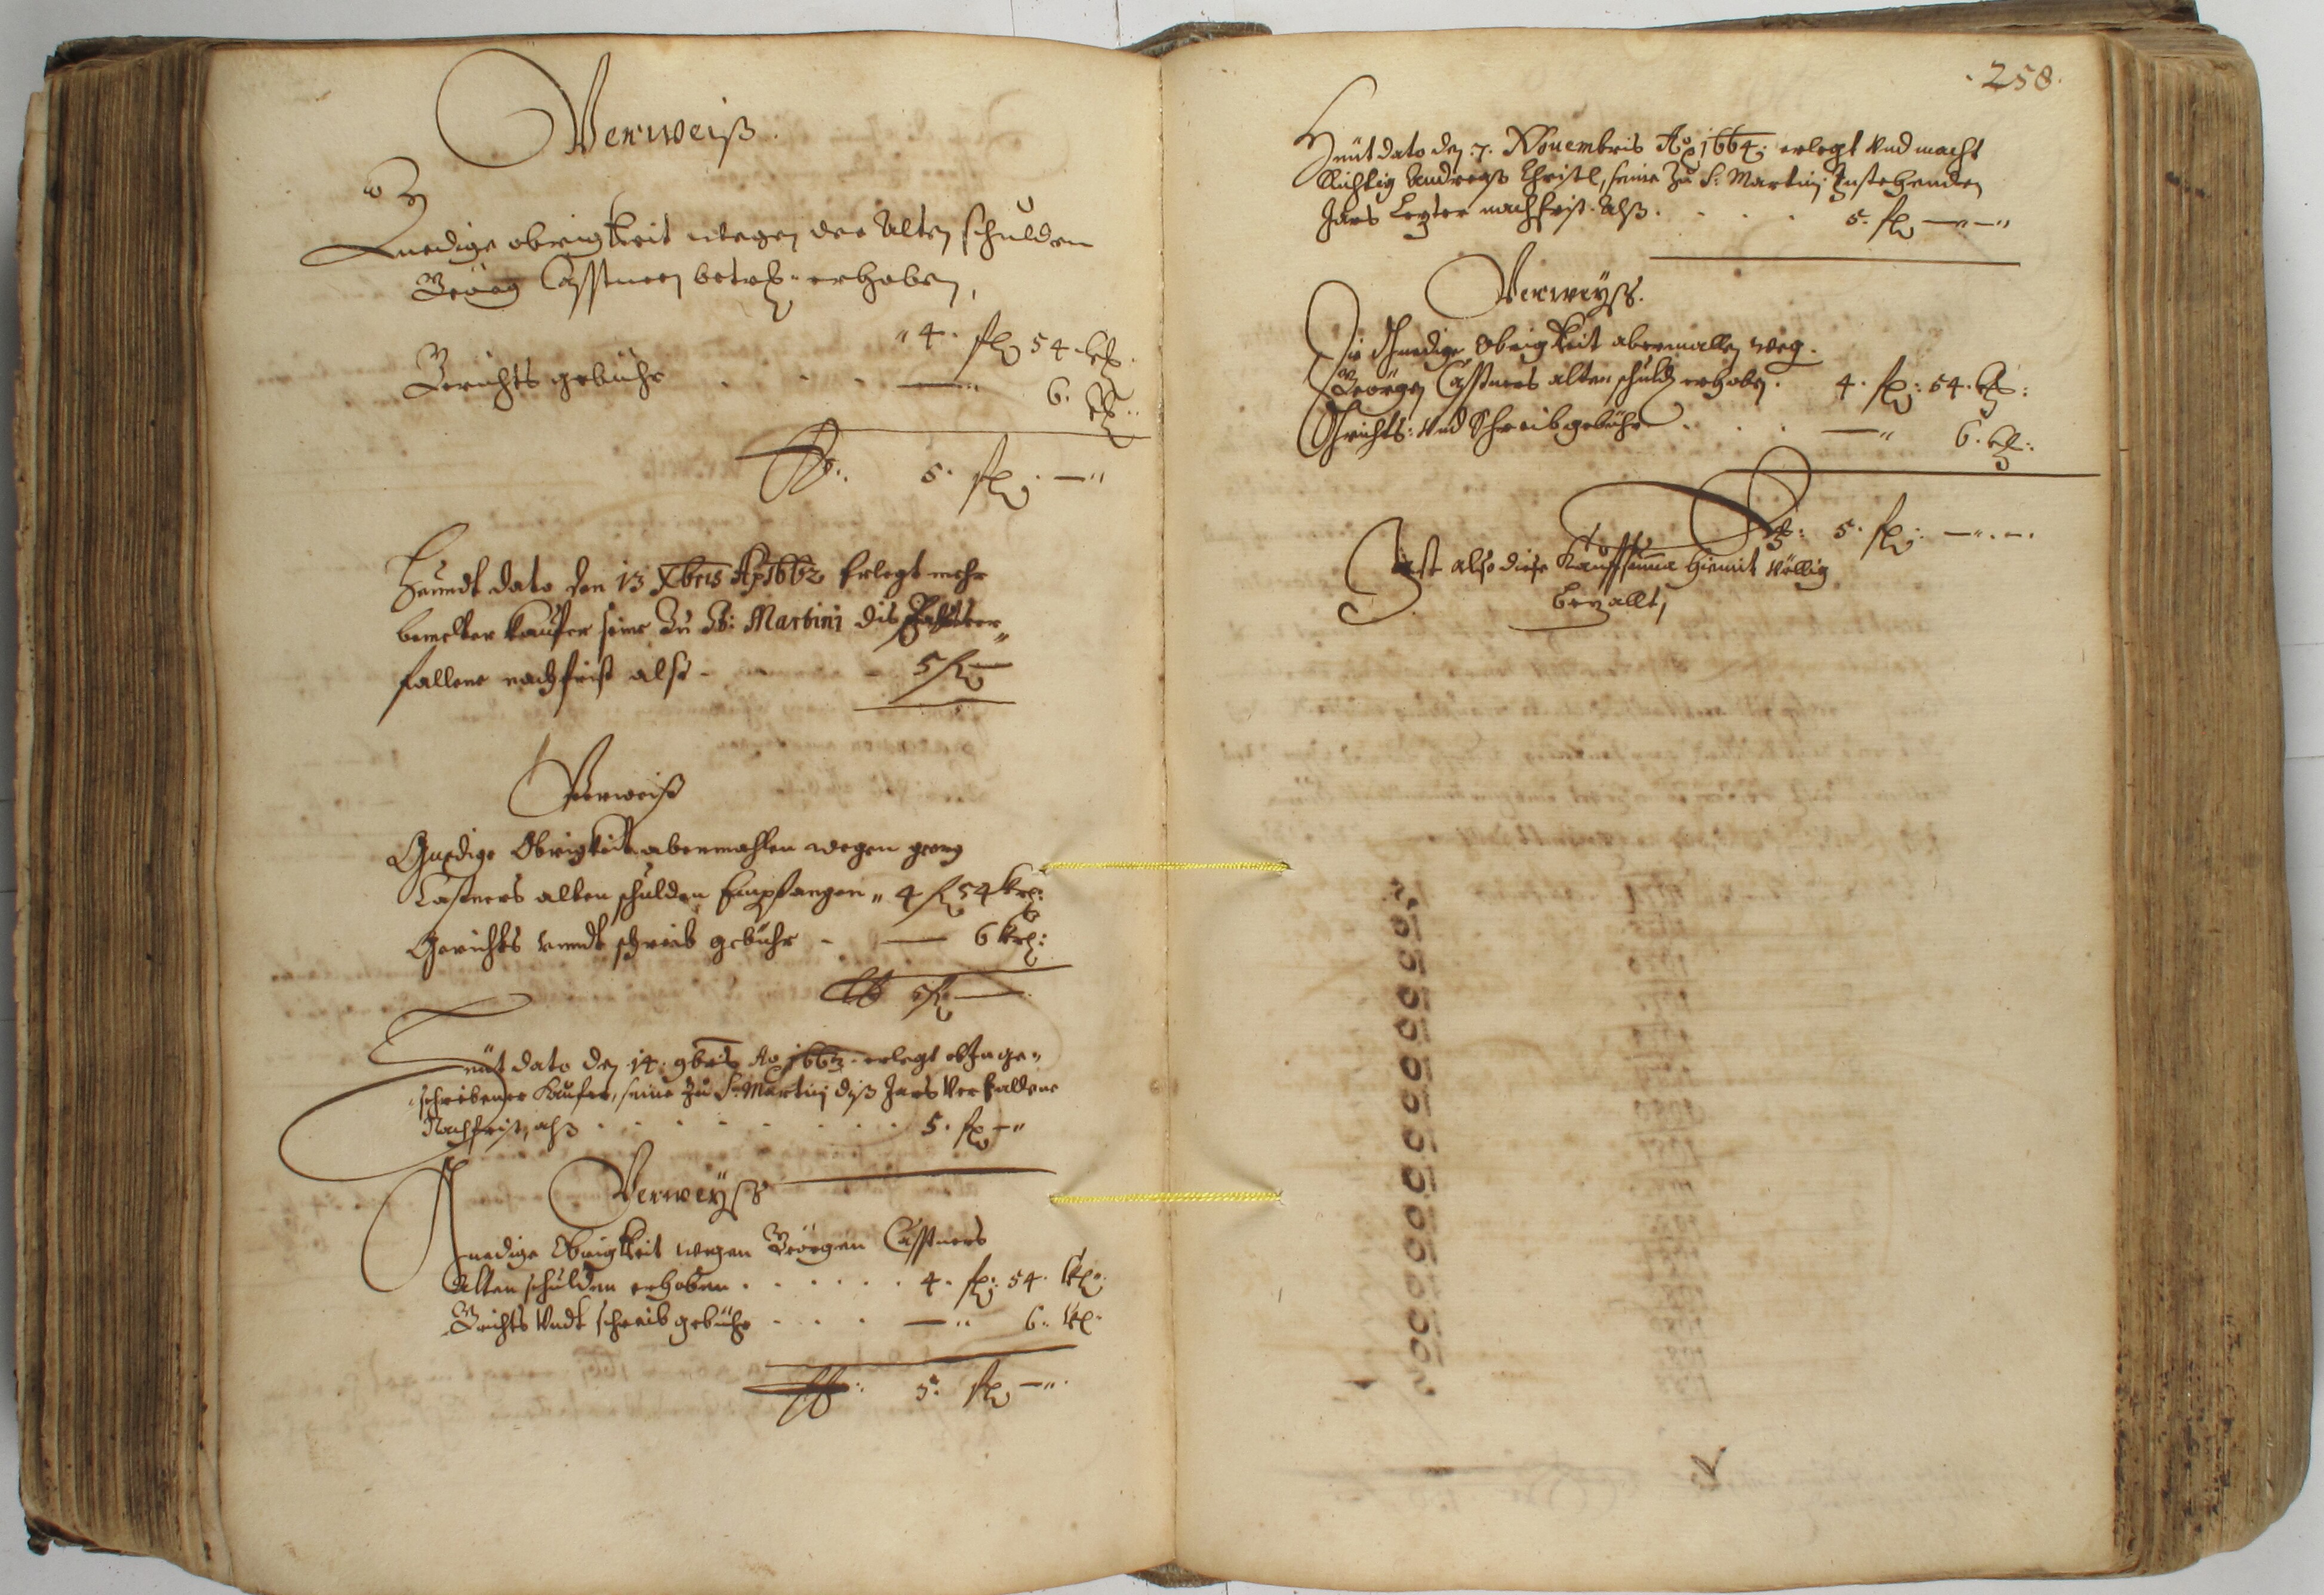 Verweiß.
Gnedige obrigkheit wegen der Alten schulden
Geörg Casstners betrf. erhoben,
"4. fl 54. kr.
Gerichts gebühr . . . . —" 6. kr.
5. fl. —"
Heündt dato den 13 Xbris Ao 1662 Erlegt mehr
bemelter Kaufer seine Zu St: Martini dis Jahr ver=
fallene nachfrist als - 5 fl —
Verweiß
Gnedige Obrigkeit abermahlen wegen georg
Castners alten schulden Empfangen " 4 fl 54 kr:
Gerichts vnndt schreib gebühr - — 6 kr:
5 fl —
Heüt dato den 14. 9bris Ao 1663. erlegt obInge=
schribener Kaufer, seine Zu S: Martinj diß Jars Verfallene
Nachfrist, alß . . . . . . . 5. fl —"
Verweyss
Gnedige Obrigkheit wegen Geörgen Casstners
Alten schulden erhoben . . . . . . 4. fl: 54. kr:
Grichts Vndt schreib gebühr . . . . —" 6. kr.
5. fl —"
.258.
Heüt dato den .7. Nouembris Ao 1664: erlegt Vnd macht
Richtig Andreas Christl, seine Zu S: Martinj Instehenden
Jars Lezter nachfrist. Alß . . . . 5. fl —"—"
Verweyss.
Die Gnedige Obrigkheit abermallen weg.
Geörgen Casstners alten schuld erhoben. 4. fl: 54. kr:
Grichts: Vnd Schreibgebühr . . . —" 6. kr:
5. fl: —"—.
Ist also diese Kauffsuma hiemit Völlig
bezallt,